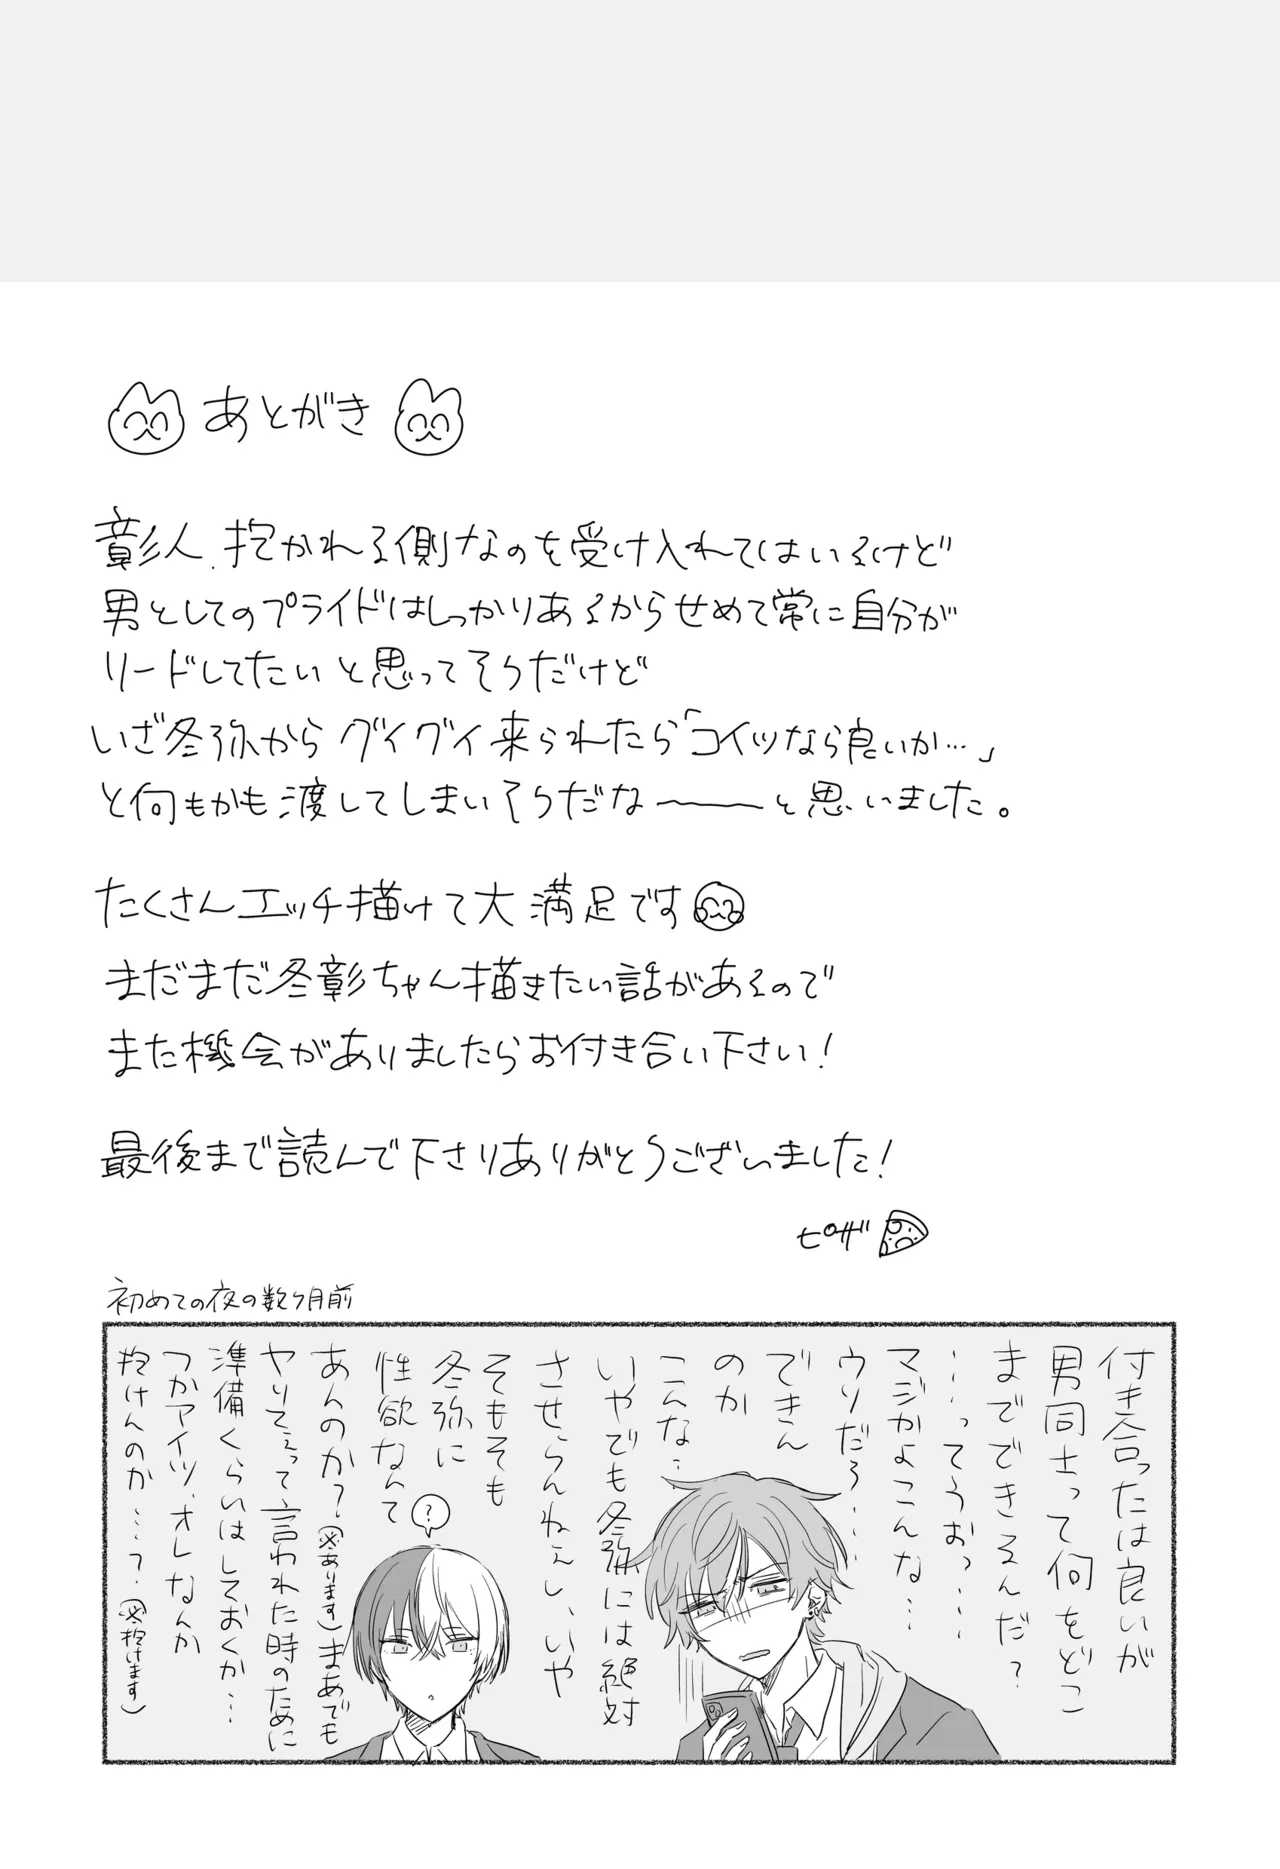 あとがき
彰人、抱かれる側なのを受け入れてはいるけど
男としてのプライドはしっかりあるからせめて常に自分が
リードしてたいと思ってそうだけど
いざ冬弥からグイグイ来られたら「コイツなら良いか…」
と何もかも渡してしまいそうだな〜〜と思いました。
たくさんエッチ描けて大満足です
まだまだ冬彰ちゃん描きたい話があるので
また機会がありましたらお付き合い下さい!
最後まで読んで下さりありがとうございました!
ピザ
初めての夜の数ヶ月前
付き合ったは良いが
男同士って何をどこ
までできるんだ?
……ってうお……
マジかよこんな…
ウリだろ……
できん
のか
こんな…
いやでも冬弥には絶対
させらんねぇし、いや
そもそも
冬弥に
性欲なんて
あんのか?(※あります)まあでも
ヤりてぇって言われた時のために
準備くらいはしておくか…
つかアイツ、オレなんか
抱けんのか……?(※抱けます)
?